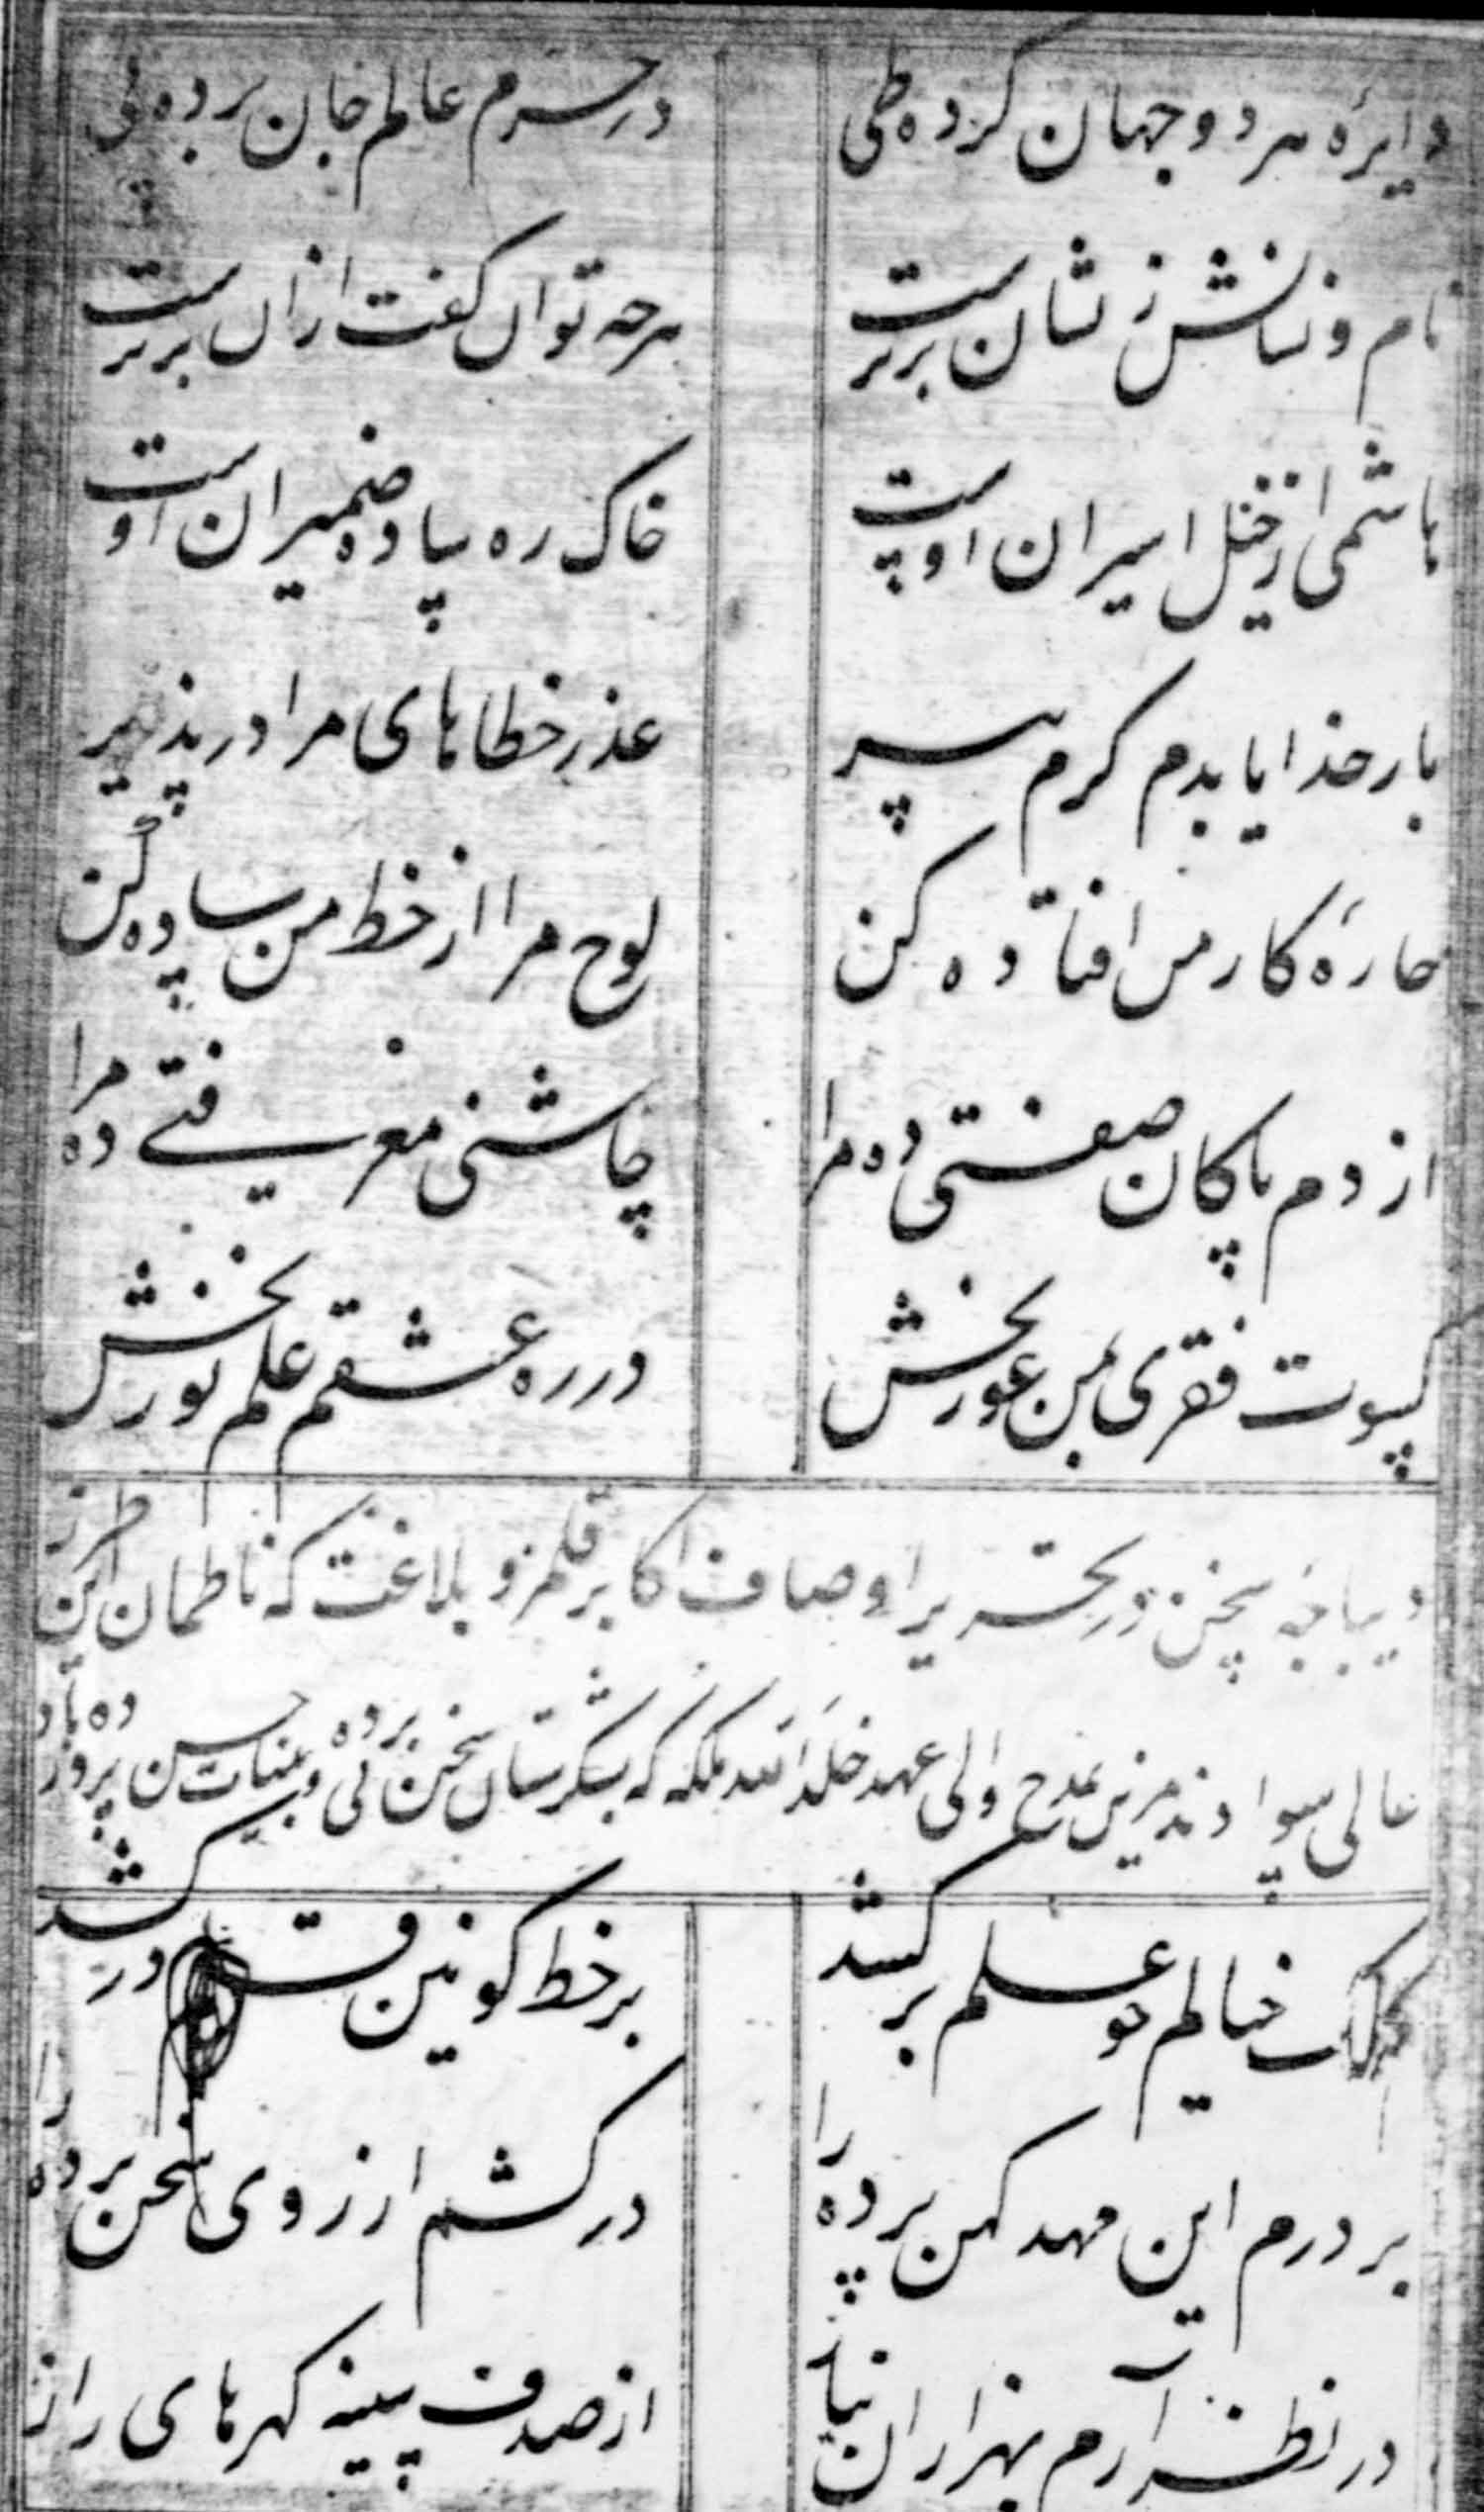 دایرهٔ هر دو جهان کرده طی در حرم عالم جان برده پی
نام و نشانش ز نشان برترست هرچه توان گفت ازان برترست
هاشمی از خیل اسیران اوست خاک ره ساده ضمیران اوست
بار خدایا بدم کرم پیر عذر خطاهای مرا در پذیر
چارهٔ کار من افتاده کن لوح مرا از خط من ساده کن
از دم پاکان صفتی ده مرا چاشنی معرفتی ده مرا
کسوت فقری بمن عور بخش در ره عشقم علم نور بخش
دیباجه سخن در تحریر اوصاف اکابر قلمرو بلاغت که ناظمان این طرز
عالی سوادند مزین بمدح والی عهد خلد الله ملکه که بشکرستان سخن پی برده و بنیات حسن پرور ده باد
کلک خیالم چو علم برکشد بر خط کونین قلم درکشد
بر درم این مهد کهن پرده را درکشم از روی سخن پرده را
در نظر آرم بهزاران نیاز از صدف سینه گهرهای راز